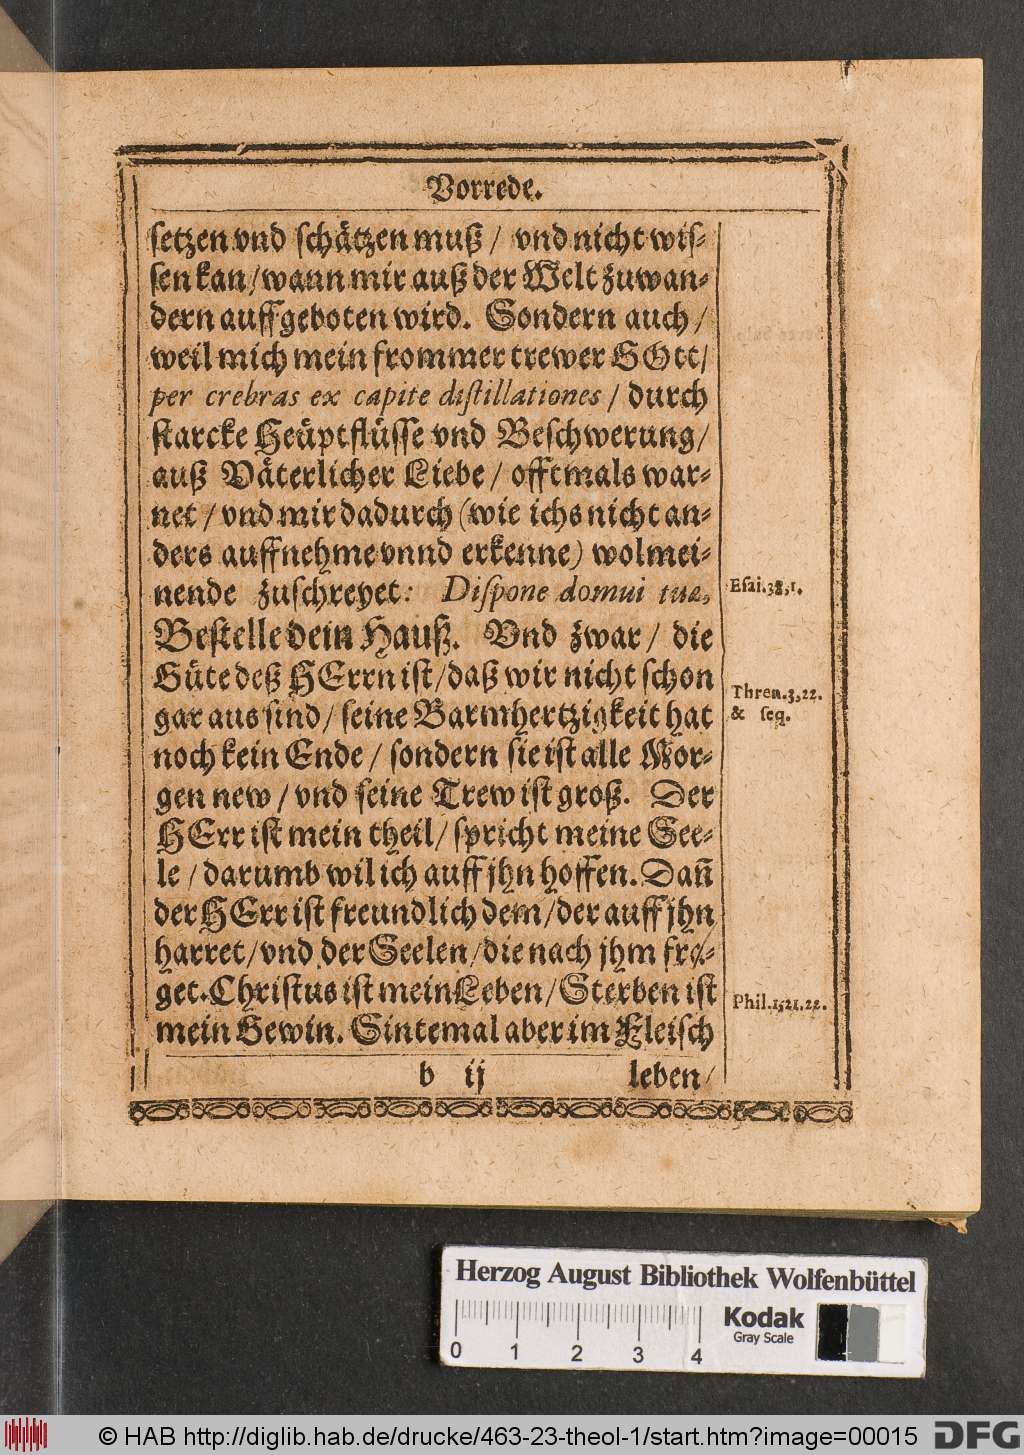 Vorrede.
setzen vnd schätzen muß / vnd nicht wis-
sen kan / wann mir auß der Welt zuwan-
dern auffgeboten wird. Sondern auch /
weil mich mein frommer trewer GOtt /
per crebras ex capite distillationes / durch
starcke Heüptflüsse vnd Beschwerung /
auß Väterlicher Liebe / offtmals war-
net / vnd mir dadurch (wie ichs nicht an-
ders auffnehme vnnd erkenne) wolmei-
nende zuschreyet: Dispone domui tuæ,
Bestelle dein Hauß. Vnd zwar / die
Güte deß HErrn ist / daß wir nicht schon
gar aus sind / seine Barmhertzigkeit hat
noch kein Ende / sondern sie ist alle Mor-
gen new / vnd seine Trew ist groß. Der
HErr ist mein theil / spricht meine See-
le / darumb wil ich auff jhn hoffen. Dañ
der HErr ist freundlich dem / der auff jhn
harret / vnd der Seelen / die nach jhm fra-
get. Christus ist mein Leben / Sterben ist
mein Gewin. Sintemal aber im Fleisch
b ij leben /
Esai. 38, 1.
Thren. 3, 22.
& seq.
Phil. 1, 21. 22.
Herzog August Bibliothek Wolfenbüttel
0 1 2 3 4
Kodak
Gray Scale
© HAB http://diglib.hab.de/drucke/463-23-theol-1/start.htm?image=00015
DFG